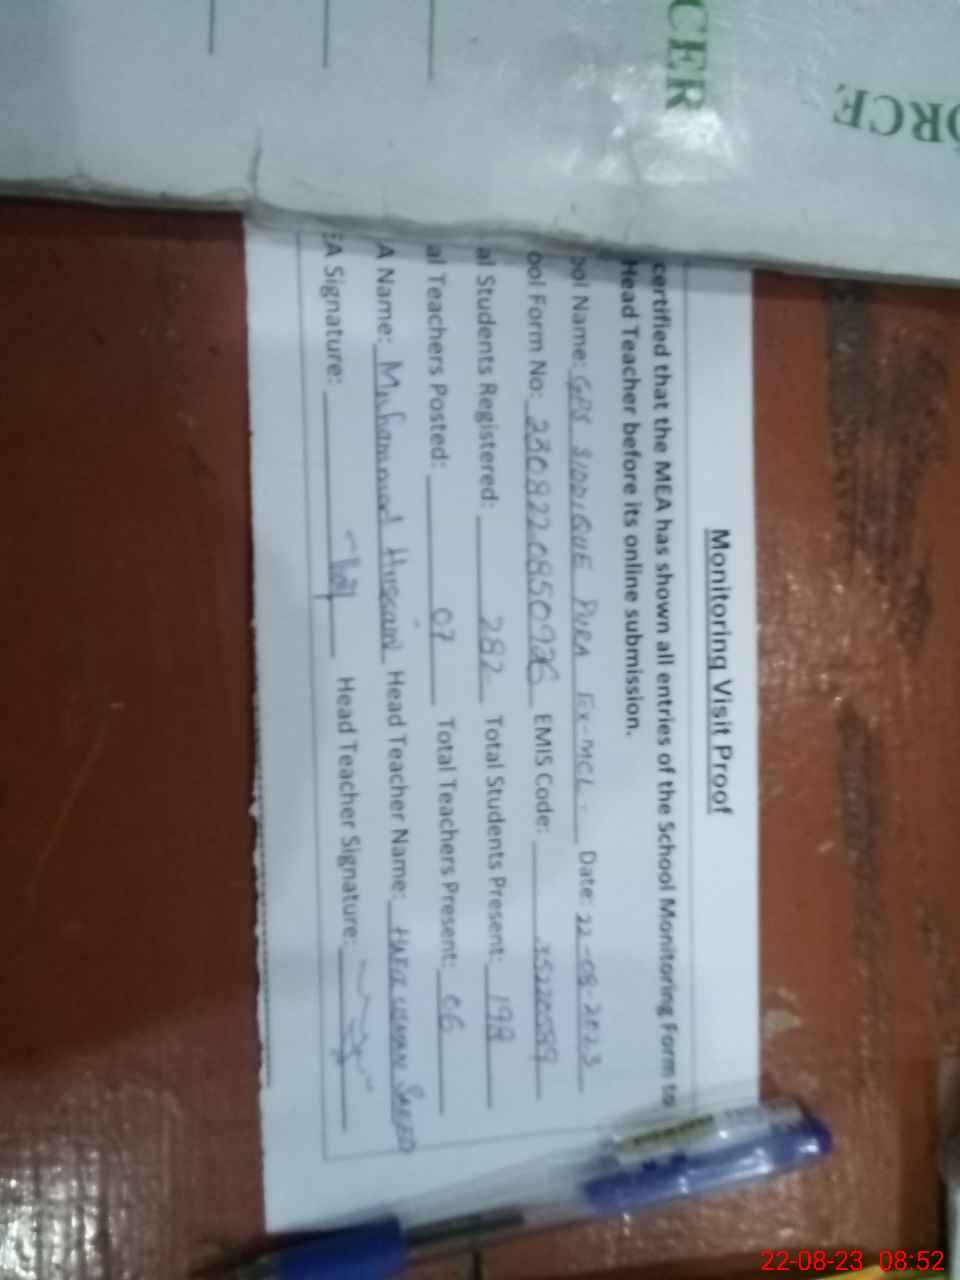 CER
ORCE
Monitoring Visit Proof
certified that the MEA has shown all entries of the School Monitoring Form to
Head Teacher before its online submission.
ool Name: GPS SIDDIQUE PURA Ex-MCL. Date: 22-08-2023
ool Form No: 230822085092 EMIS Code: 35220089
al Students Registered: 282 Total Students Present: 198
al Teachers Posted: 07 Total Teachers Present: 06
A Name: Muhammad Hussain Head Teacher Name: HAFIZ USMAN SAEED
EA Signature: Head Teacher Signature:
22-08-23 08:52